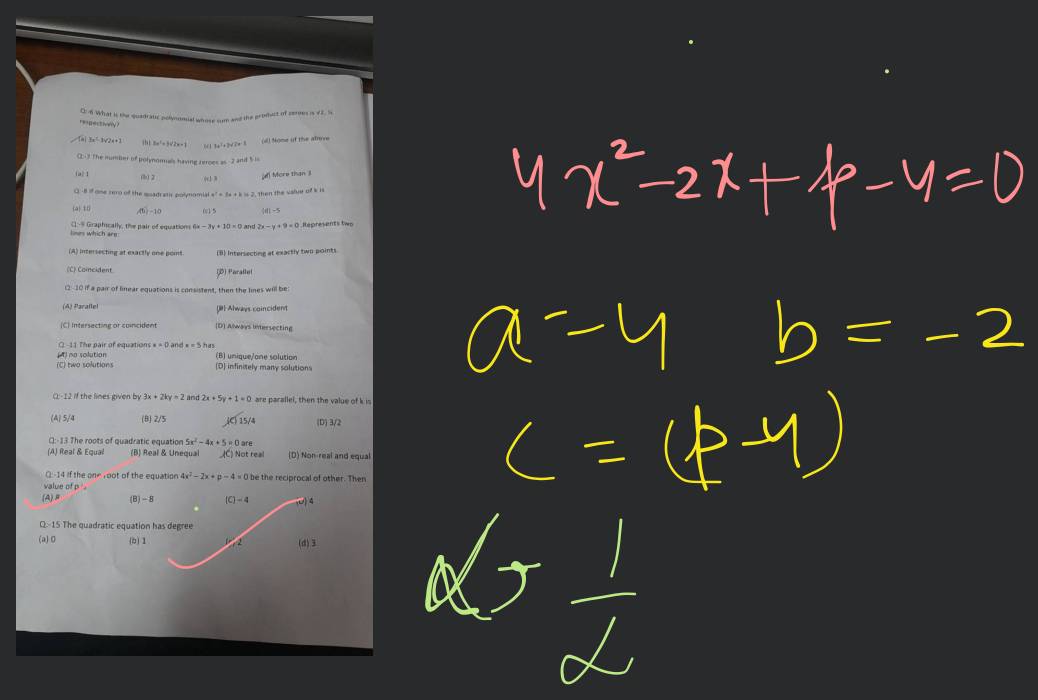 Q:-6 What is the quadratic polynomial whose sum and the product of zeroes is √2, ⅓
respectively?
(a) 3x²-3√2x+1 (b) 3x²+3√2x+1 (c) 3x²+3√2x-1 (d) None of the above
Q:-7 The number of polynomials having zeroes as -2 and 5 is
(a) 1 (b) 2 (c) 3 (d) More than 3
Q:-8 If one zero of the quadratic polynomial x² + 3x + k is 2, then the value of k is
(a) 10 (b) -10 (c) 5 (d) -5
Q:-9 Graphically, the pair of equations 6x – 3y + 10 = 0 and 2x – y + 9 = 0 .Represents two
lines which are:
(A) Intersecting at exactly one point. (B) Intersecting at exactly two points.
(C) Coincident. (D) Parallel
Q:-10 If a pair of linear equations is consistent, then the lines will be:
(A) Parallel (B) Always coincident
(C) Intersecting or coincident (D) Always intersecting
Q:-11 The pair of equations x = 0 and x = 5 has
(A) no solution (B) unique/one solution
(C) two solutions (D) infinitely many solutions
Q:-12 If the lines given by 3x + 2ky = 2 and 2x + 5y + 1 = 0 are parallel, then the value of k is
(A) 5/4 (B) 2/5 (C) 15/4 (D) 3/2
Q:-13 The roots of quadratic equation 5x² – 4x + 5 = 0 are
(A) Real & Equal (B) Real & Unequal (C) Not real (D) Non-real and equal
Q:-14 If the one root of the equation 4x² – 2x + p – 4 = 0 be the reciprocal of other. Then
value of p is
(A) 8 (B) – 8 (C) – 4 (D) 4
Q:-15 The quadratic equation has degree
(a) 0 (b) 1 (c) 2 (d) 3
4x² - 2x + p - 4 = 0
a = 4 b = -2
c = (p-4)
α 1
α